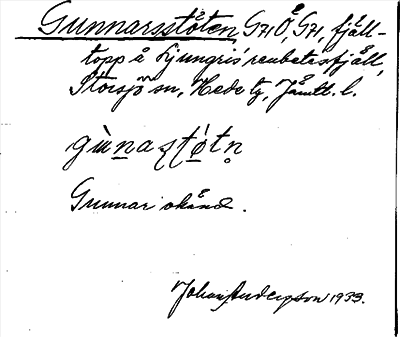 Gunnarsstöten G71Ö, G71, fjäll-
topp å Ljungris' renbetesfjäll,
Storsjö sn, Hede tg, Jämtl. l.
gùnaʂʈó̠tn̥
Gunnar okänd.
Johan Anderson 1933.